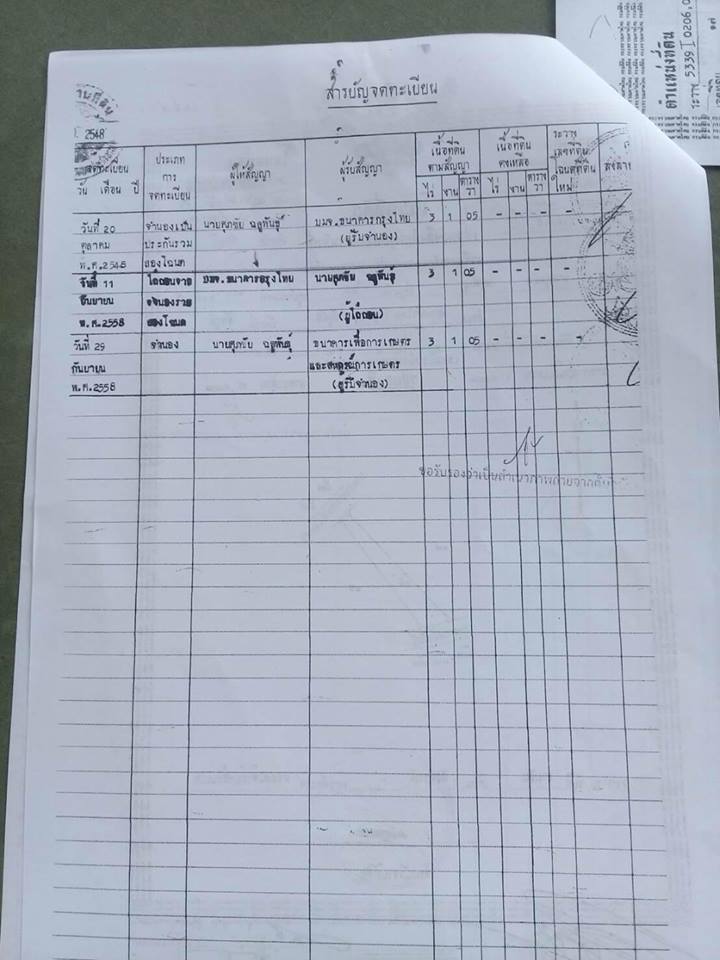 สารบัญจดทะเบียน
2548
จดทะเบียน
วัน เดือน ปี
ประเภท
การ
จดทะเบียน
ผู้ให้สัญญา
ผู้รับสัญญา
เนื้อที่ดิน
ตามสัญญา
ไร่ งาน ตาราง
วา
เนื้อที่ดิน
คงเหลือ
ไร่ งาน ตาราง
วา
ระวาง
เลขที่ดิน
โฉนดที่ดิน
ใหม่
วันที่ 20 จำนองเป็น นายศุภชัย บมจ.ธนาคารกรุงไทย 3 1 05 - - - -
ตุลาคม ประกันรวม (ผู้รับจำนอง)
พ.ศ.2548 สองโฉนด
วันที่ 11 ไถ่ถอนจาก บมจ.ธนาคารกรุงไทย นายศุภชัย 3 1 05 - - - -
กันยายน จำนองรวม (ผู้ไถ่ถอน)
พ.ศ.2558 สองโฉนด
วันที่ 29 จำนอง นายศุภชัย ธนาคารเพื่อการเกษตร 3 1 05 - - - -
กันยายน และสหกรณ์การเกษตร
พ.ศ.2558 (ผู้รับจำนอง)
ขอรับรองว่าเป็นสำเนาภาพถ่ายจาก
ตำแหน่งที่ดิน
ระวาง 5339 I 0206